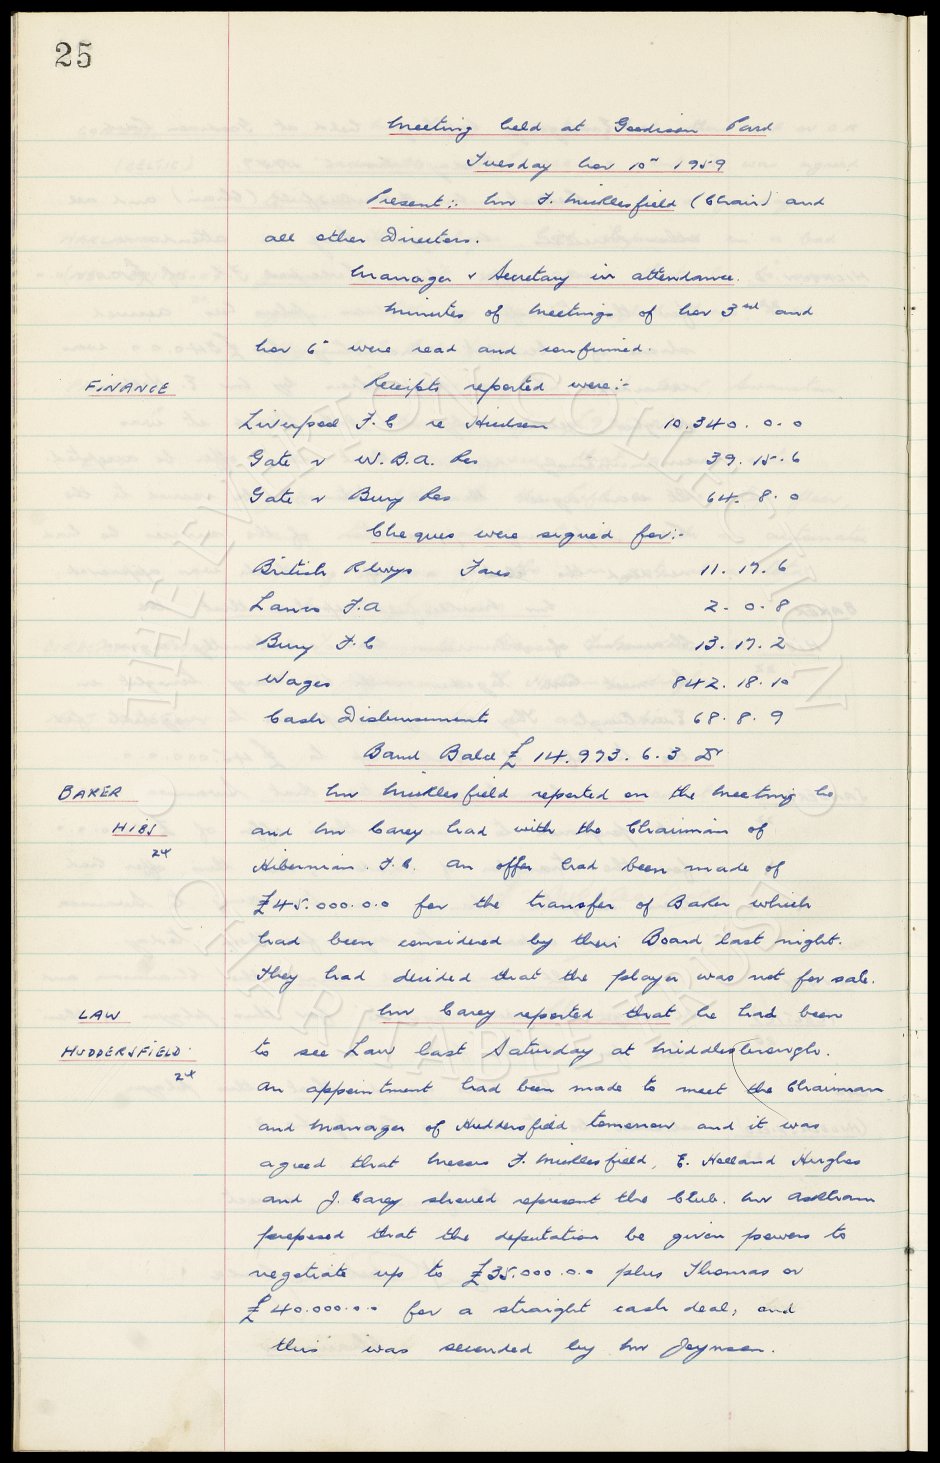 25
Meeting held at Goodison Park
Tuesday Nov 10th 1959
Present:- Mr F. Micklesfield (Chair) and
all other Directors.
Manager & Secretary in attendance.
Minutes of Meetings of Nov 3rd and
Nov 6th were read and confirmed.
FINANCE Receipts reported were:-
Liverpool F.C re Hickson 10,340. 0. 0
Gate v W.B.A. Res 39. 15. 6
Gate v Bury Res 64. 8. 0
Cheques were signed for:-
British Rlwys Fares 11. 17. 6
Lancs F.A 2. 0. 8
Bury F.C 13. 17. 2
Wages 842. 18. 10
Cash Disbursements 68. 8. 9
Bank Balce £14,973. 6. 3 Dr
BAKER Mr Micklesfield reported on the meeting he
HIBS and Mr Carey had with the Chairman of
24
Hibernian F.C. An offer had been made of
£45.000.0.0 for the transfer of Baker which
had been considered by their Board last night.
They had decided that the player was not for sale.
LAW Mr Carey reported that he had been
HUDDERSFIELD to see Law last Saturday at Middlesbrough.
24
An appointment had been made to meet the Chairman
and Manager of Huddersfield tomorrow and it was
agreed that Messrs F. Micklesfield, E. Holland Hughes
and J. Carey should represent the Club. Mr Askham
proposed that the deputation be given powers to
negotiate up to £35.000.0.0 plus Thomas or
£40.000.0.0 for a straight cash deal, and
this was seconded by Mr Joynson.
EVERTON COLLECTION
CHARITABLE TRUST